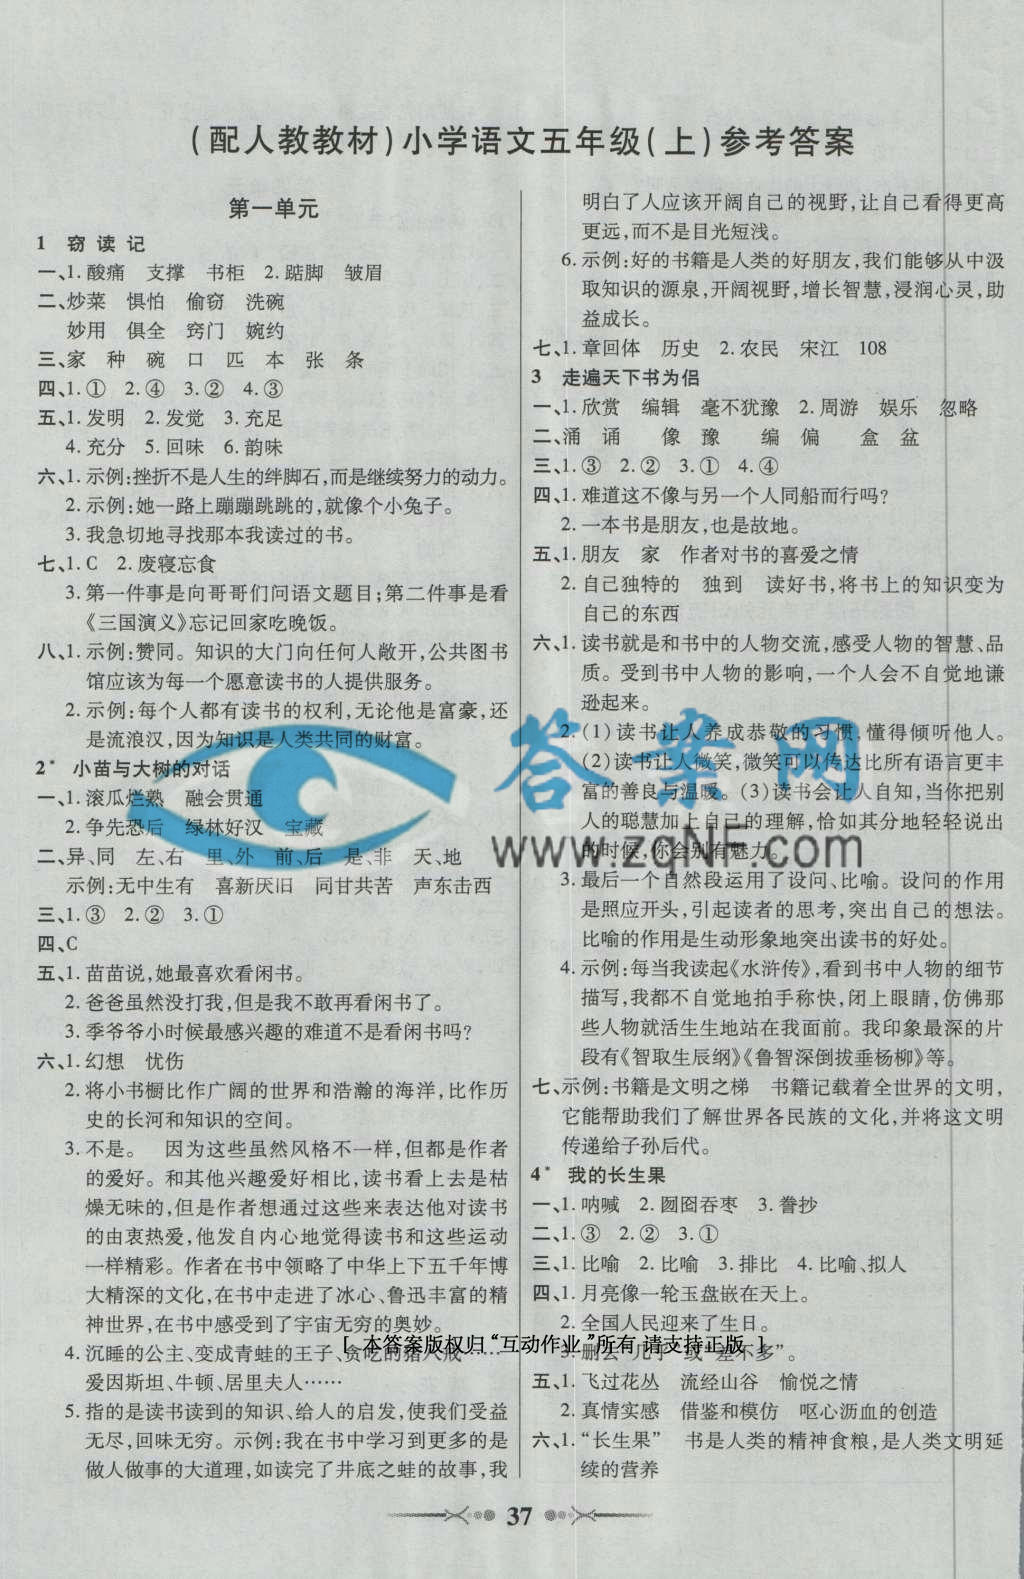 (配人教教材)小学语文五年级(上)参考答案
第一单元
1 窃读记
一、1.酸痛 支撑 书柜 2.踮脚 皱眉
二、炒菜 惧怕 偷窃 洗碗
妙用 俱全 窍门 婉约
三、家 种 碗 口 匹 本 张 条
四、1.① 2.④ 3.② 4.③
五、1.发明 2.发觉 3.充足
4.充分 5.回味 6.韵味
六、1.示例:挫折不是人生的绊脚石,而是继续努力的动力。
2.示例:她一路上蹦蹦跳跳的,就像个小兔子。
3.我急切地寻找那本我读过的书。
七、1.C 2.废寝忘食
3.第一件事是向哥哥们问语文题目;第二件事是看
《三国演义》忘记回家吃晚饭。
八、1.示例:赞同。知识的大门向任何人敞开,公共图书
馆应该为每一个愿意读书的人提供服务。
2.示例:每个人都有读书的权利,无论他是富豪,还
是流浪汉,因为知识是人类共同的财富。
2* 小苗与大树的对话
一、1.滚瓜烂熟 融会贯通
2.争先恐后 绿林好汉 宝藏
二、异、同 左、右 里、外 前、后 是、非 天、地
示例:无中生有 喜新厌旧 同甘共苦 声东击西
三、1.③ 2.② 3.①
四、C
五、1.苗苗说,她最喜欢看闲书。
2.爸爸虽然没打我,但是我不敢再看闲书了。
3.季爷爷小时候最感兴趣的难道不是看闲书吗?
六、1.幻想 忧伤
2.将小书橱比作广阔的世界和浩瀚的海洋,比作历
史的长河和知识的空间。
3.不是。 因为这些虽然风格不一样,但都是作者
的爱好。和其他兴趣爱好相比,读书看上去是枯
燥无味的,但是作者想通过这些来表达他对读书
的由衷热爱,他发自内心地觉得读书和这些运动
一样精彩。作者在书中领略了中华上下五千年博
大精深的文化,在书中走进了冰心、鲁迅丰富的精
神世界,在书中感受到了宇宙无穷的奥妙。
4.沉睡的公主、变成青蛙的王子、贪吃的猪八戒……
爱因斯坦、牛顿、居里夫人……
5.指的是读书读到的知识、给人的启发,使我们受益
无尽,回味无穷。示例:我在书中学习到更多的是
做人做事的大道理,如读完了井底之蛙的故事,我
明白了人应该开阔自己的视野,让自己看得更高
更远,而不是目光短浅。
6.示例:好的书籍是人类的好朋友,我们能够从中汲
取知识的源泉,开阔视野,增长智慧,浸润心灵,助
益成长。
七、1.章回体 历史 2.农民 宋江 108
3 走遍天下书为侣
一、1.欣赏 编辑 毫不犹豫 2.周游 娱乐 忽略
二、涌 诵 像 豫 编 偏 盒 盆
三、1.③ 2.② 3.① 4.④
四、1.难道这不像与另一个人同船而行吗?
2.一本书是朋友,也是故地。
五、1.朋友 家 作者对书的喜爱之情
2.自己独特的 独到 读好书,将书上的知识变为
自己的东西
六、1.读书就是和书中的人物交流,感受人物的智慧、品
质。受到书中人物的影响,一个人会不自觉地谦
逊起来。
2.(1)读书让人养成恭敬的习惯,懂得倾听他人。
(2)读书让人微笑,微笑可以传达比所有语言更丰
富的善良与温暖。(3)读书会让人自知,当你把别
人的聪慧加上自己的理解,恰如其分地轻轻说出
的时候,你会别有魅力。
3.最后一个自然段运用了设问、比喻。设问的作用
是照应开头,引起读者的思考,突出自己的想法。
比喻的作用是生动形象地突出读书的好处。
4.示例:每当我读起《水浒传》,看到书中人物的细节
描写,我都不自觉地拍手称快,闭上眼睛,仿佛那
些人物就活生生地站在我面前。我印象最深的片
段有《智取生辰纲》《鲁智深倒拔垂杨柳》等。
七、示例:书籍是文明之梯 书籍记载着全世界的文明,
它能帮助我们了解世界各民族的文化,并将这文明
传递给子孙后代。
4* 我的长生果
一、1.呐喊 2.囫囵吞枣 3.誊抄
二、1.③ 2.② 3.①
三、1.比喻 2.比喻 3.排比 4.比喻、拟人
四、1.月亮像一轮玉盘嵌在天上。
2.全国人民迎来了生日。
3.删去“几乎”或“差不多”。
五、1.飞过花丛 流经山谷 愉悦之情
2.真情实感 借鉴和模仿 呕心沥血的创造
六、1.“长生果” 书是人类的精神食粮,是人类文明延
续的营养
[ 本答案版权归“互动作业”所有 请支持正版 ]
答案网
www.zqNF.com
37